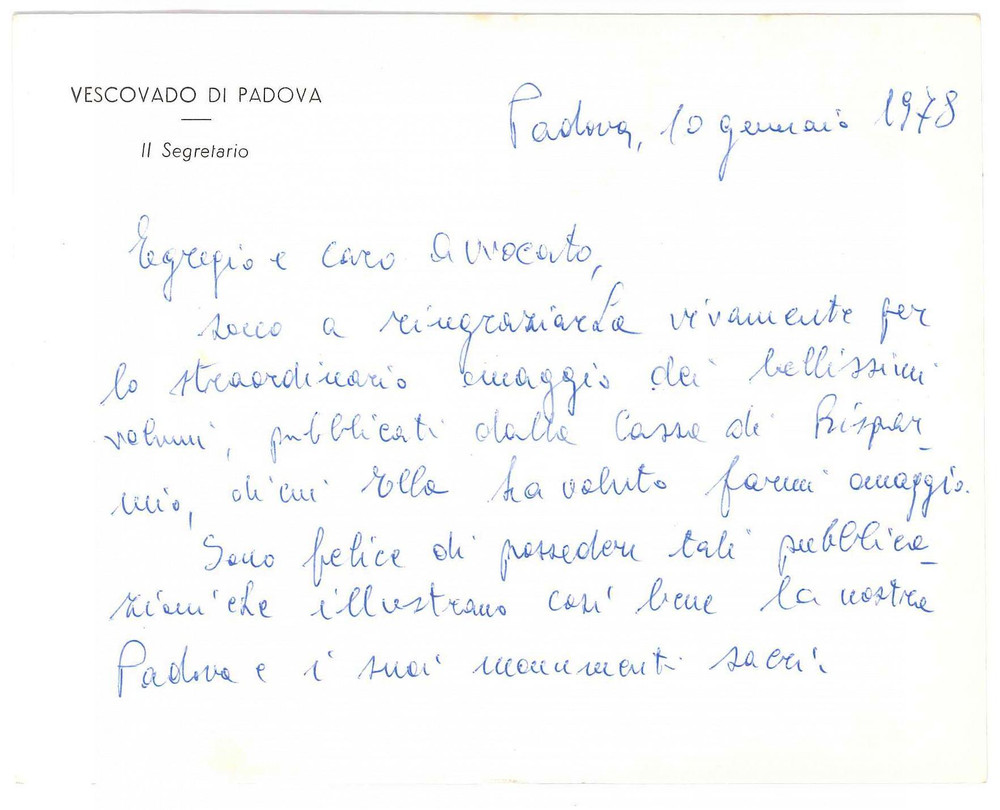 VESCOVADO DI PADOVA
Il Segretario
Padova, 10 gennaio 1978
Egregio e caro Avvocato,
sono a ringraziarLa vivamente per
lo straordinario omaggio dei bellissimi
volumi, pubblicati dalla Cassa di Rispar-
mio, di cui Ella ha voluto farmi omaggio.
Sono felice di possedere tali pubblica-
zioni che illustrano così bene la nostra
Padova e i suoi monumenti sacri.